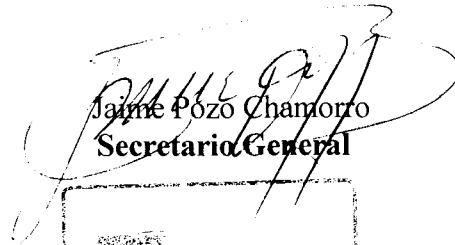 Jaime Pozo Chamorro
Secretario General